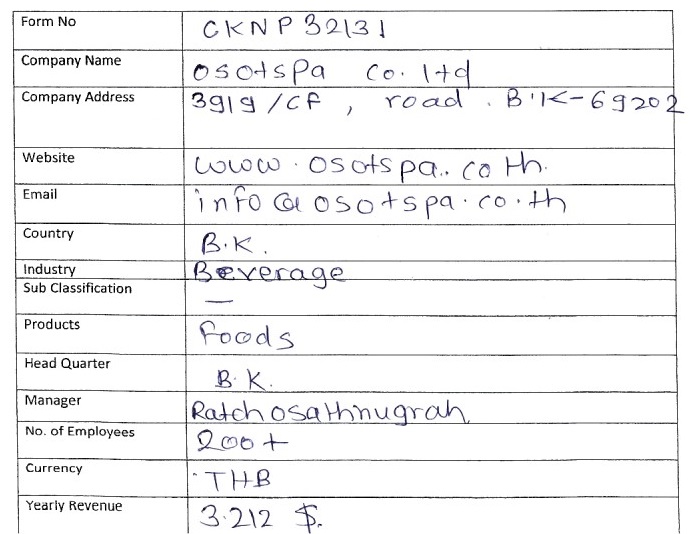 Form No CKNP32131
Company Name osotspa co. ltd
Company Address 3919/CF, road. B'K-69202
Website www.osotspa..co th.
Email info@osotspa.co.th
Country B.K.
Industry Beverage
Sub Classification —
Products Foods
Head Quarter B.K.
Manager Ratchosathnugrah,
No. of Employees 200+
Currency THB
Yearly Revenue 3.212 $.